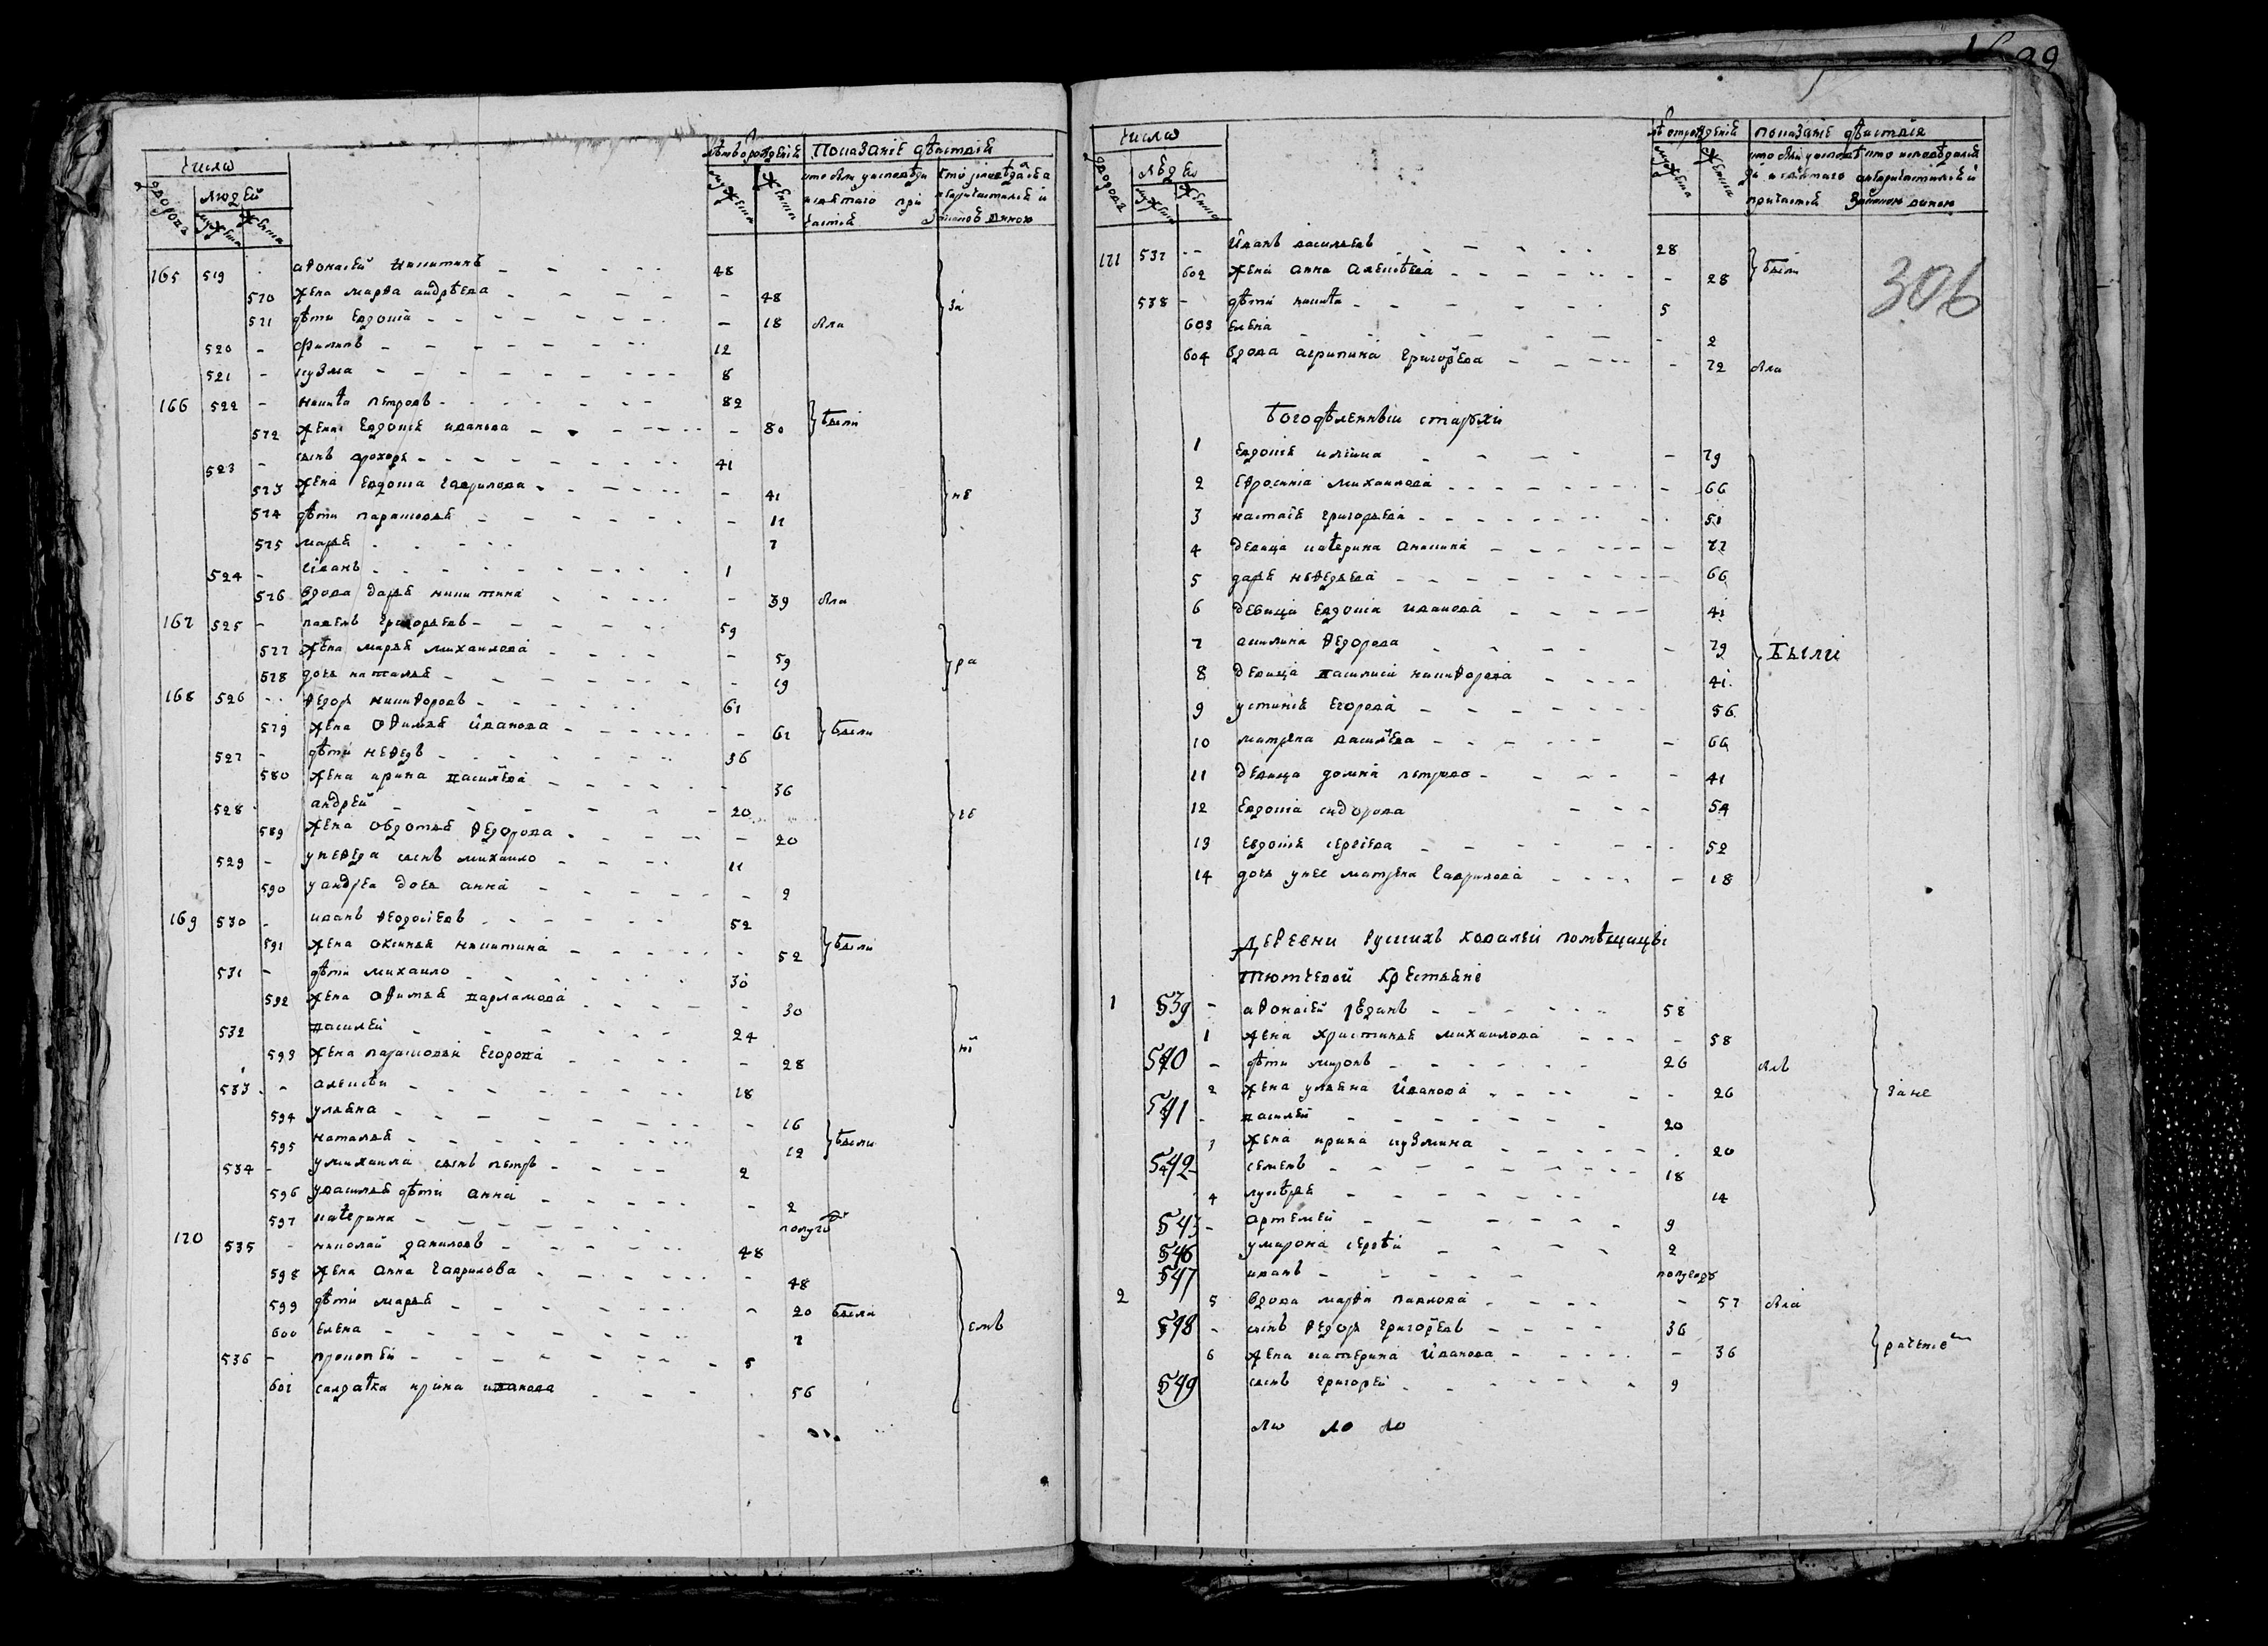 число
дворовъ
людей
мужеска
женска
лѣтъ от рождения
мужеска
женска
Показание дѣйствия
165 519 афонасей никитинъ 48
570 жена марфа андрѣева 48 за
571 дѣти Евдокия 18 была
520 филипъ 12
521 кузма 8
166 522 никита петровъ 82
572 жена Евдокия иванова 80 были
523 сынъ прохоръ 41
573 жена Евдокия гаврилова 41 не
574 дѣти парасковья 11
575 марья 7
524 иванъ 1
576 вдова дарья никитина 39 была
167 525 павелъ григорьевъ 59
577 жена марья михаилова 59 ра
578 дочь наталья 19
168 526 федоръ никифоровъ 61
579 жена офимья иванова 61 были
527 дѣти нефедъ 36
580 жена ирина василева 36
528 андрей 20
589 жена овдотья федорова 20
529 у нефеда сынъ михаило 11
590 у андрея дочь анна 2
169 530 иванъ федосѣевъ 52
591 жена оксинья никитина 52 были
531 дѣти михаило 30
592 жена офимья варламова 30
532 василей 24
593 жена парасковья Егорова 28
533 алексѣй 18
594 ульяна 16
595 наталья 12 были
534 у михаила сынъ петръ 2
596 у василья дѣти анна 2
597 катерина полуго
170 535 николай даниловъ 48
598 жена анна гаврилова 48
599 дѣти марья 20 была
600 Елена 7 емъ
536 прокопей 5
601 салдатка ирина иванова 56
306
число
дворовъ
людей
мужеска
женска
лѣтъ от рождения
мужеска
женска
показание дѣйствия
171 537 иванъ васильевъ 28
602 жена анна алексѣева 28 были
538 дѣти никита 5
603 Елена 2
604 вдова агрипина григорьева 72 была
Богодѣленныи старухи
1 Евдокия илѣина 79
2 Ефросиния михаилова 66
3 настасья григорьева 51
4 девица катерина аникина 77
5 дарья нефедьева 66
6 девица Евдокия иванова 41
7 акилина федорова 79 Были
8 девица василиса никифорова 41
9 устиния Егорова 56
10 матрена василева 66
11 девица домна петрова 41
12 Евдокия сидорова 54
13 Евдокия сергѣева 52
14 дочь у нее матрена гаврилова 18
деревни руских ковалей помѣщицы
тютчевой крестьяне
1 539 афонасей 58
1 жена христинья михаилова 58
540 дѣти миронъ 26 былъ
2 жена ульяна иванова 26 зане
541 василей 20
3 жена ирина кузмина 20
542 семенъ 18
4 лукерья 14
543 артемей 9
546 у мирона сергѣй 2
547 иванъ полугоду
2 5 вдова марфа павлова 57 была
548 сынъ федоръ григорьевъ 36
6 жена катерина иванова 36 рачение
549 сынъ григорей 9